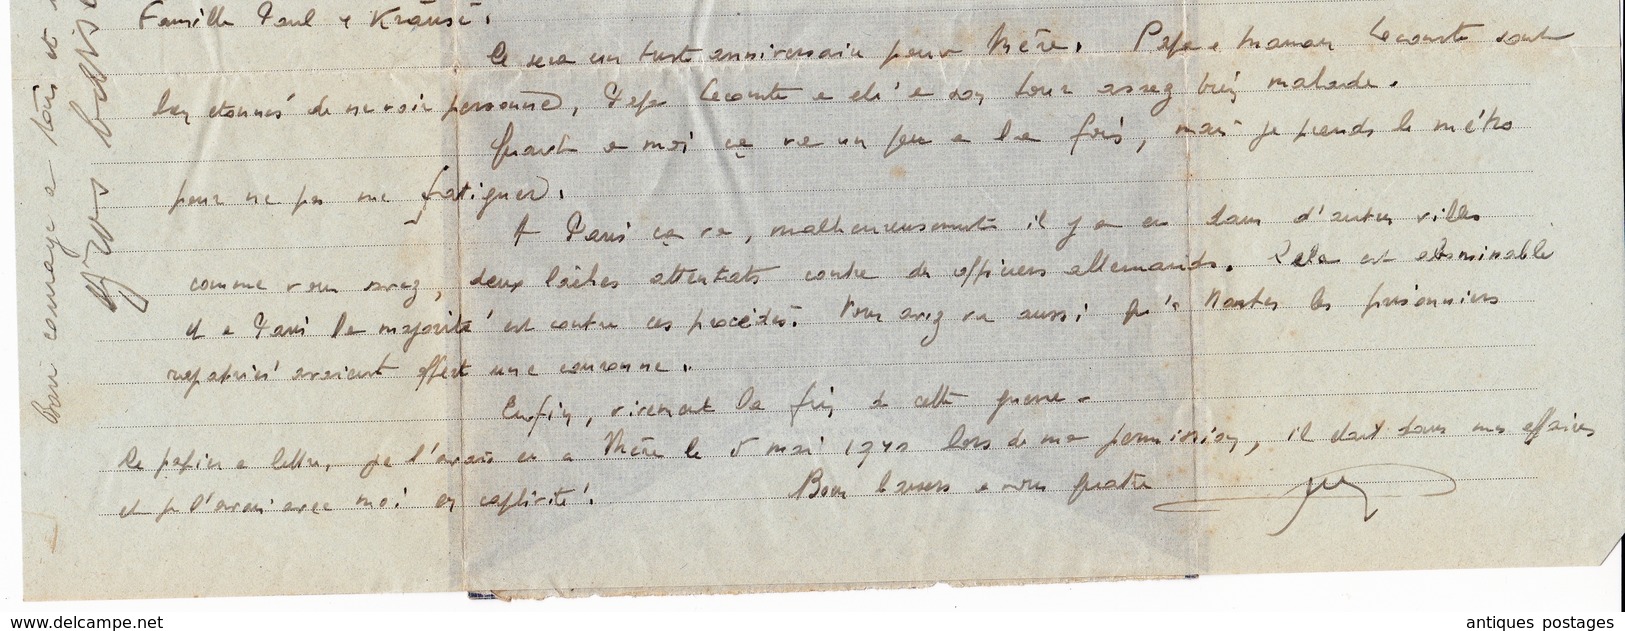 Famille Paul & Krauss.
Ce sera un triste anniversaire pour Mère. Papa e Maman Lecomte sont
bien étonnés de ne voir personne, Papa Lecomte a été à son tour assez bien malade.
Quant a moi ça va un peu a la fois, mais je prends le métro
pour ne pas me fatiguer.
A Paris ça va, malheureusement il y a eu dans d'autres villes
comme vous savez, deux lâches attentats contre des officiers allemands. Cela est abominable
et a Paris la majorité est contre ces procédés. Vous avez vu aussi qu'à Nantes les prisonniers
rapatriés avaient offert une couronne.
Enfin, vivement la fin de cette guerre.
Le papier a lettre, je l'avais eu a Mère le 5 mai 1940 lors de ma permission, il était dans mes affaires
et je l'avais avec moi en captivité.
Bons baisers a vous quatre
Bon courage a tous et
gros baisers
www.delcampe.net
antiques postages